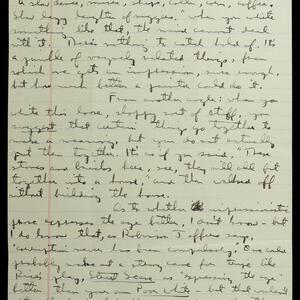 a slow dense, nurses, ships, coke, corn, coffee.
Slow dizzy laughter of niggers." When you write
something like that, the mind cannot deal
with it. There's nothing to catch hold of. It's
a jumble of vaguely related things, from
which one gets an impression, sure enough,
but how much better a painter could do it.
From another angle: when you
write this loose, sloppy sort of stuff, you
suggest that certain things go together to
make a meaning, but you do not actually
put them together. It's as if you said, "These
stones and bricks here, see, they will all fit
together into a house", and then walked off
without building the house.
As to whether impressionistic
prose expresses the age better, I don't know - but
I do know that, as Robinson Jeffers says,
"corruption never has been compulsory." One could
probably make out a strong case for tripe like
Rice's play, Street Scene as "expressing the age"
better than your own Pom Arts - but that wouldn't